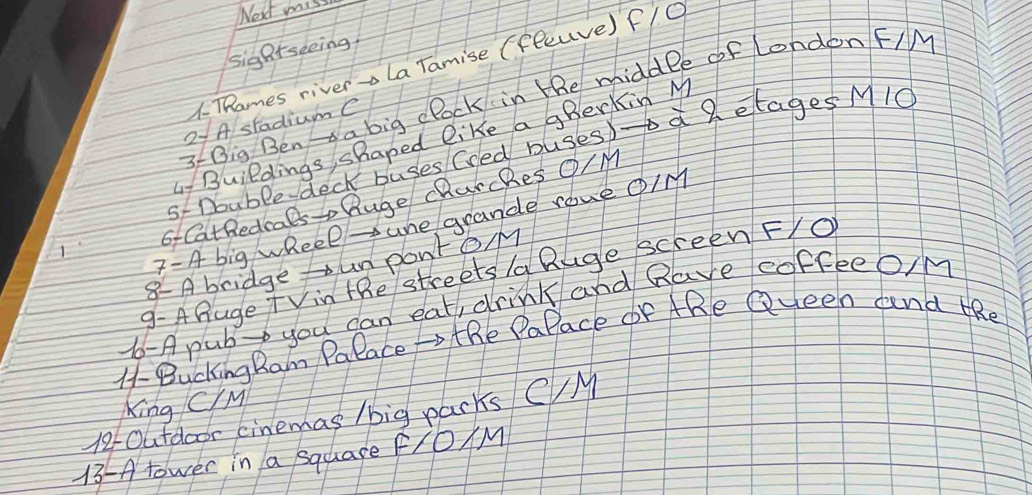 Next miss
Sightseeing.
1- Thames river → La Tamise (fleuve) F/O
2- A stadium C
3- Big Ben → a big clock in the middle of London F/M
4- Buildings, shaped like a gherkin M
5- Double-deck buses (red buses) → à 2 etages M/O
6- Cathedrals → huge churches O/M
7- A big wheel → une grande roue O/M
8- A bridge → un pont O/M
9- A huge TV in the streets / a huge screen F/O
10- A pub → you can eat, drink and have coffee O/M
11- Buckingham Palace → the Palace of the Queen and the
King C/M
12- Outdoor cinemas / big parks C/M
13- A tower in a square F/O/M